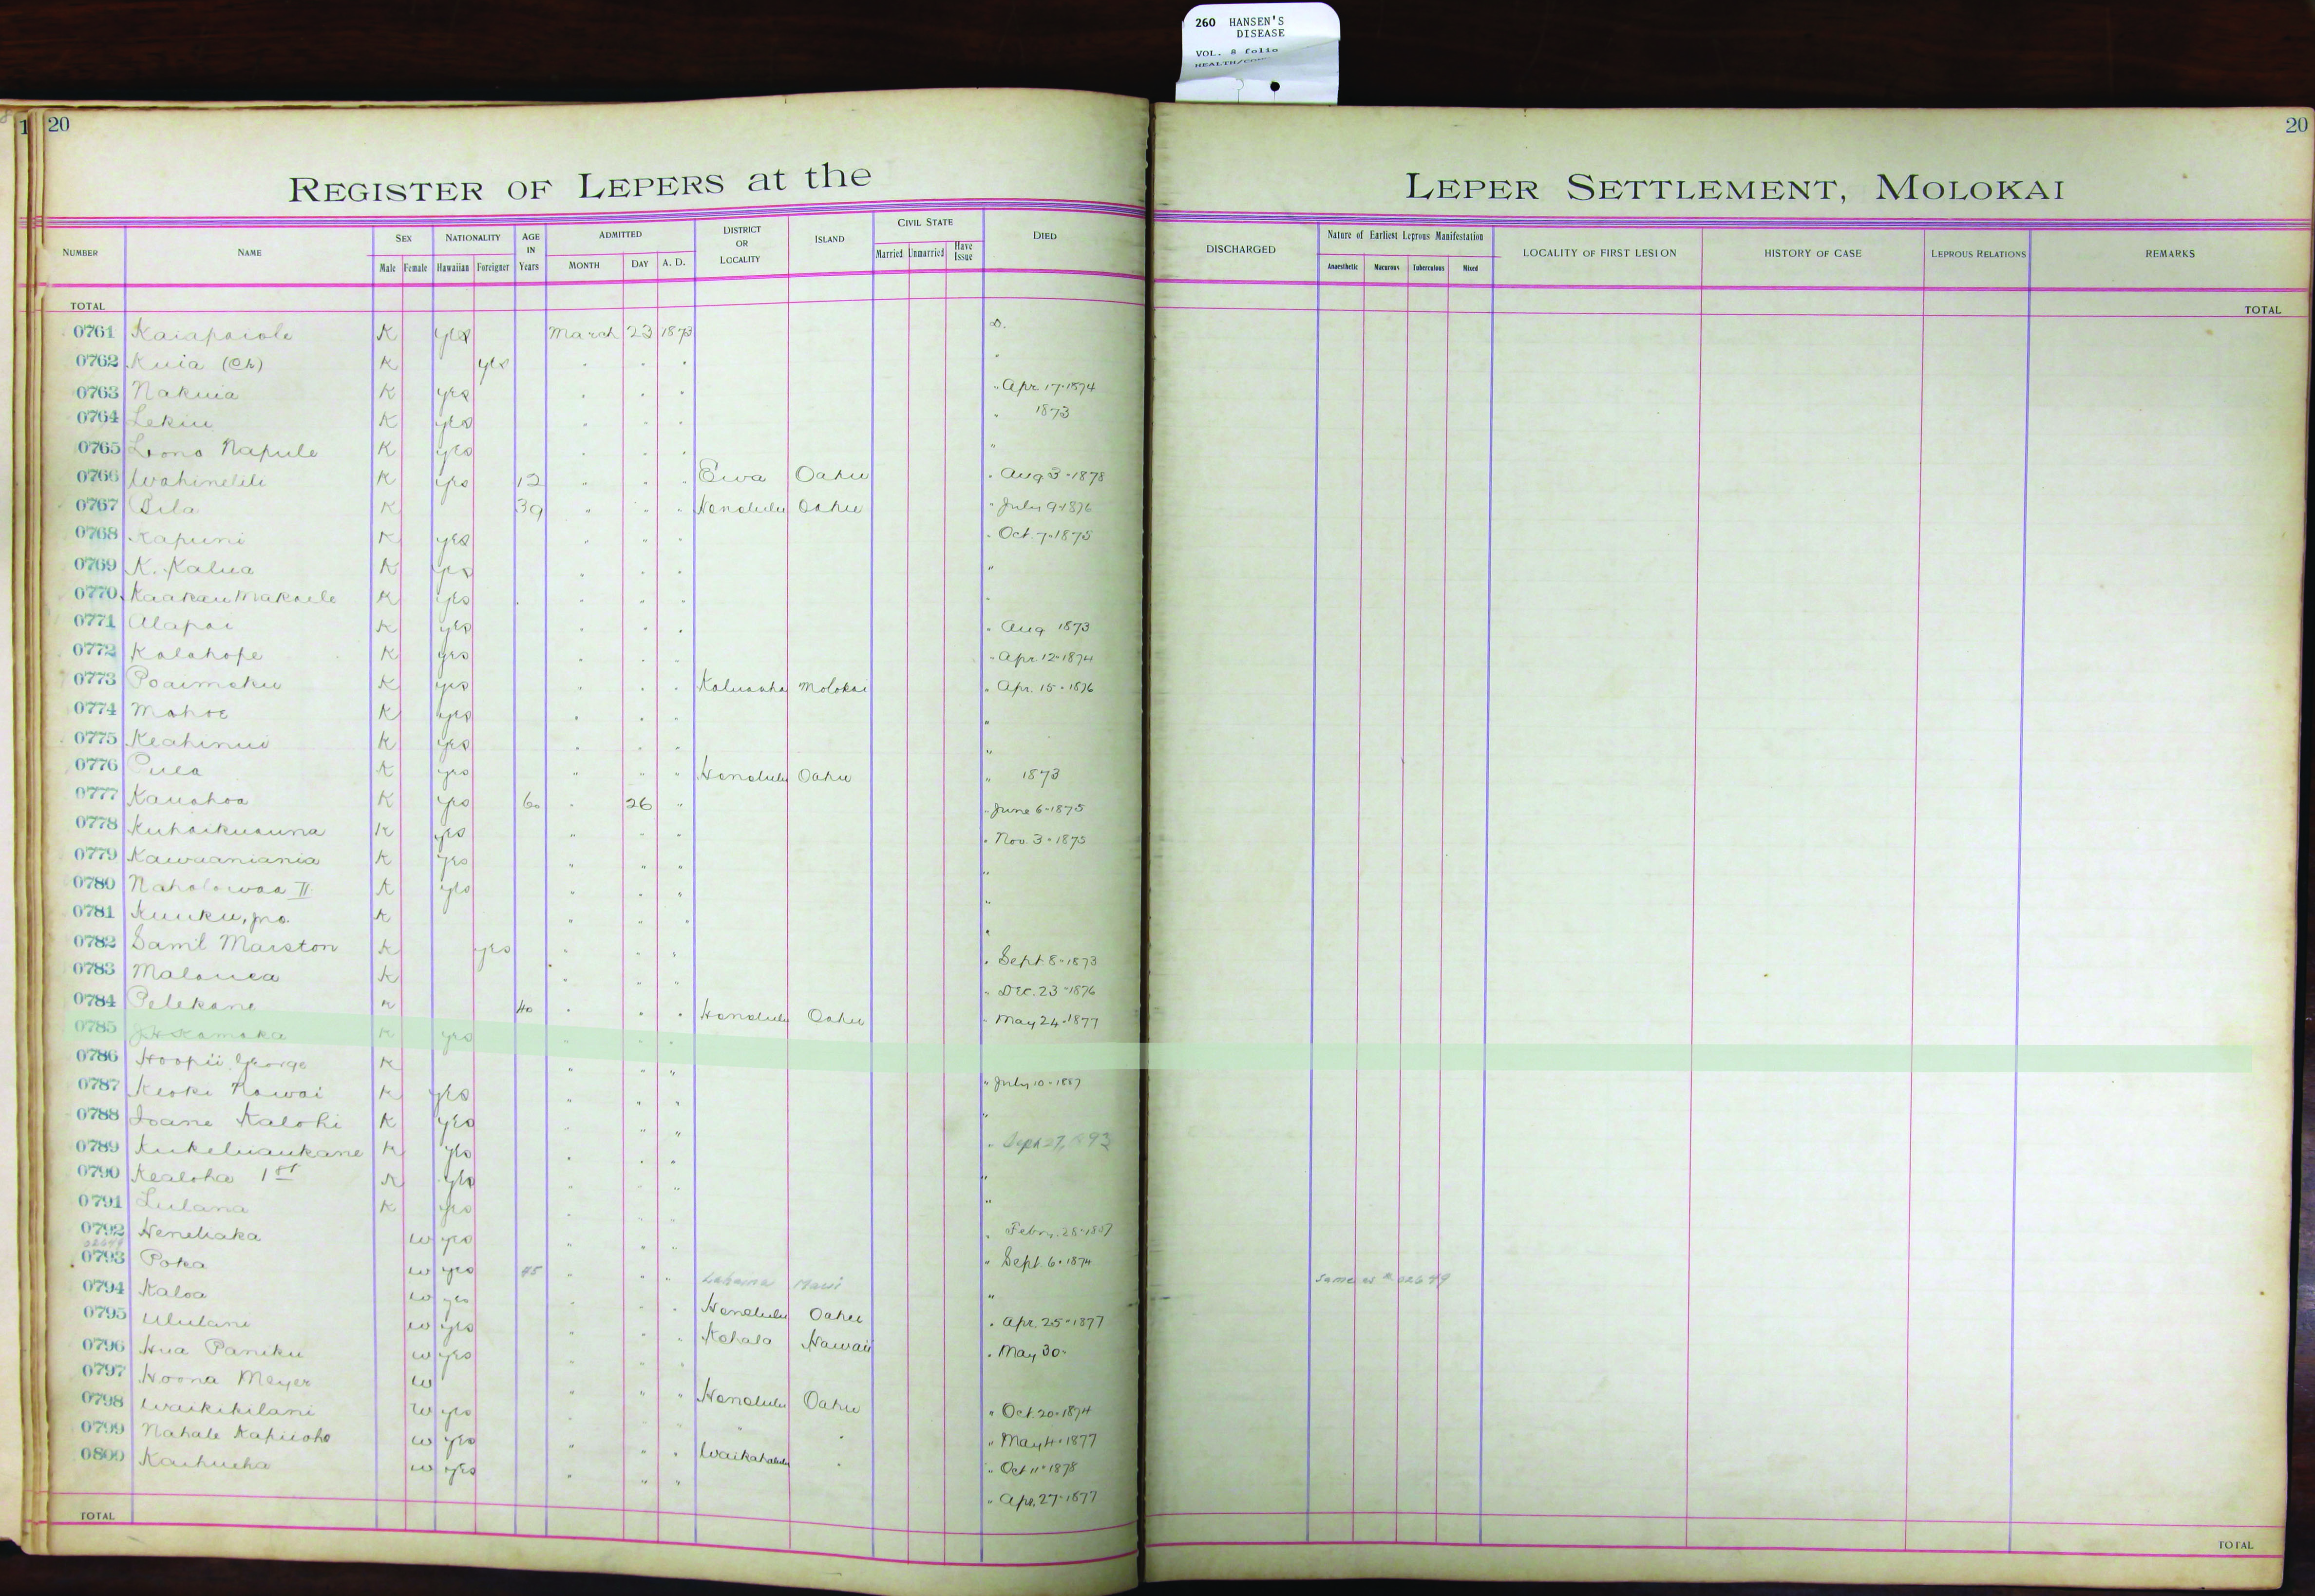 260 HANSEN'S
DISEASE
VOL. 8 folio
20
20
REGISTER OF LEPERS at the
LEPER SETTLEMENT, MOLOKAI
NUMBER NAME SEX Male Female NATIONALITY Hawaiian Foreigner AGE IN Years ADMITTED MONTH DAY A. D. DISTRICT OR LOCALITY ISLAND CIVIL STATE Married Unmarried Have Issue DIED
DISCHARGED Nature of Earliest Leprous Manifestation Anaesthetic Macurous Tuberculous Mixed LOCALITY OF FIRST LESION HISTORY OF CASE LEPROUS RELATIONS REMARKS
TOTAL TOTAL
0761 Kaiapaiole K yes March 23 1873 D.
0762 Kuia (Ch) K yes
0763 Nakuia K yes " Apr. 17-1874
0764 Lekiu K yes " 1873
0765 Lono Napule K yes "
0766 Wahinelili K yes 12 " " " Ewa Oahu " Aug 3-1878
0767 Pila K 39 " " " Honolulu Oahu " July 9-1876
0768 Kapuni K yes " " " " Oct. 7-1875
0769 K. Kalua K yes " " " "
0770 Kaakau Makaele K yes " " " "
0771 Alapai K yes " " " " Aug 1873
0772 Kalahope K yes " " " " Apr. 12-1874
0773 Poaimoku K yes " " " Kaluaaha Molokai " Apr. 15-1876
0774 Mahoe K yes " " " "
0775 Keahinui K yes " " " "
0776 Puea K yes " " " Honolulu Oahu " 1873
0777 Kauahoa K yes 60 " 26 " " June 6-1875
0778 Kuhaikuauna K yes " " " " Nov. 3-1875
0779 Kawaaniania K yes " " " "
0780 Naholowaa II K yes " " " "
0781 Kuuku, jno. K " " " "
0782 Saml Marston K yes " " " " Sept 8-1873
0783 Malouea K " " " " Dec. 23-1876
0784 Pelekane K 40 " " " Honolulu Oahu " May 24-1877
0785 Kamaka K yes " " "
0786 Hoopii George K " " " " July 10-1887
0787 Keoki Nawai K yes " " " "
0788 Ioane Kalohi K yes " " " " Sept 27, 1893
0789 Kukeluaukane K yes " " " "
0790 Kealoha 1st K yes " " " "
0791 Lulana K yes " " " " Febr. 28-1887
0792 Henehaka W yes " " " " Sept. 6-1874
0793 Poka W yes 45 " " " Lahaina Maui " same as # 02649
0794 Kaloa W yes " " " Honolulu Oahu " Apr. 25-1877
0795 Ululani W yes " " " Kohala Hawaii " May 30-
0796 Hua Paniku W yes " " "
0797 Hoona Meyer W " " " Honolulu Oahu " Oct. 20-1874
0798 Waikikilani W yes " " " " " May 4-1877
0799 Nahale Kapuoho W yes " " " Waikahalulu " " Oct 11-1878
0800 Kaihueha W yes " " " " Apr. 27-1877
TOTAL TOTAL